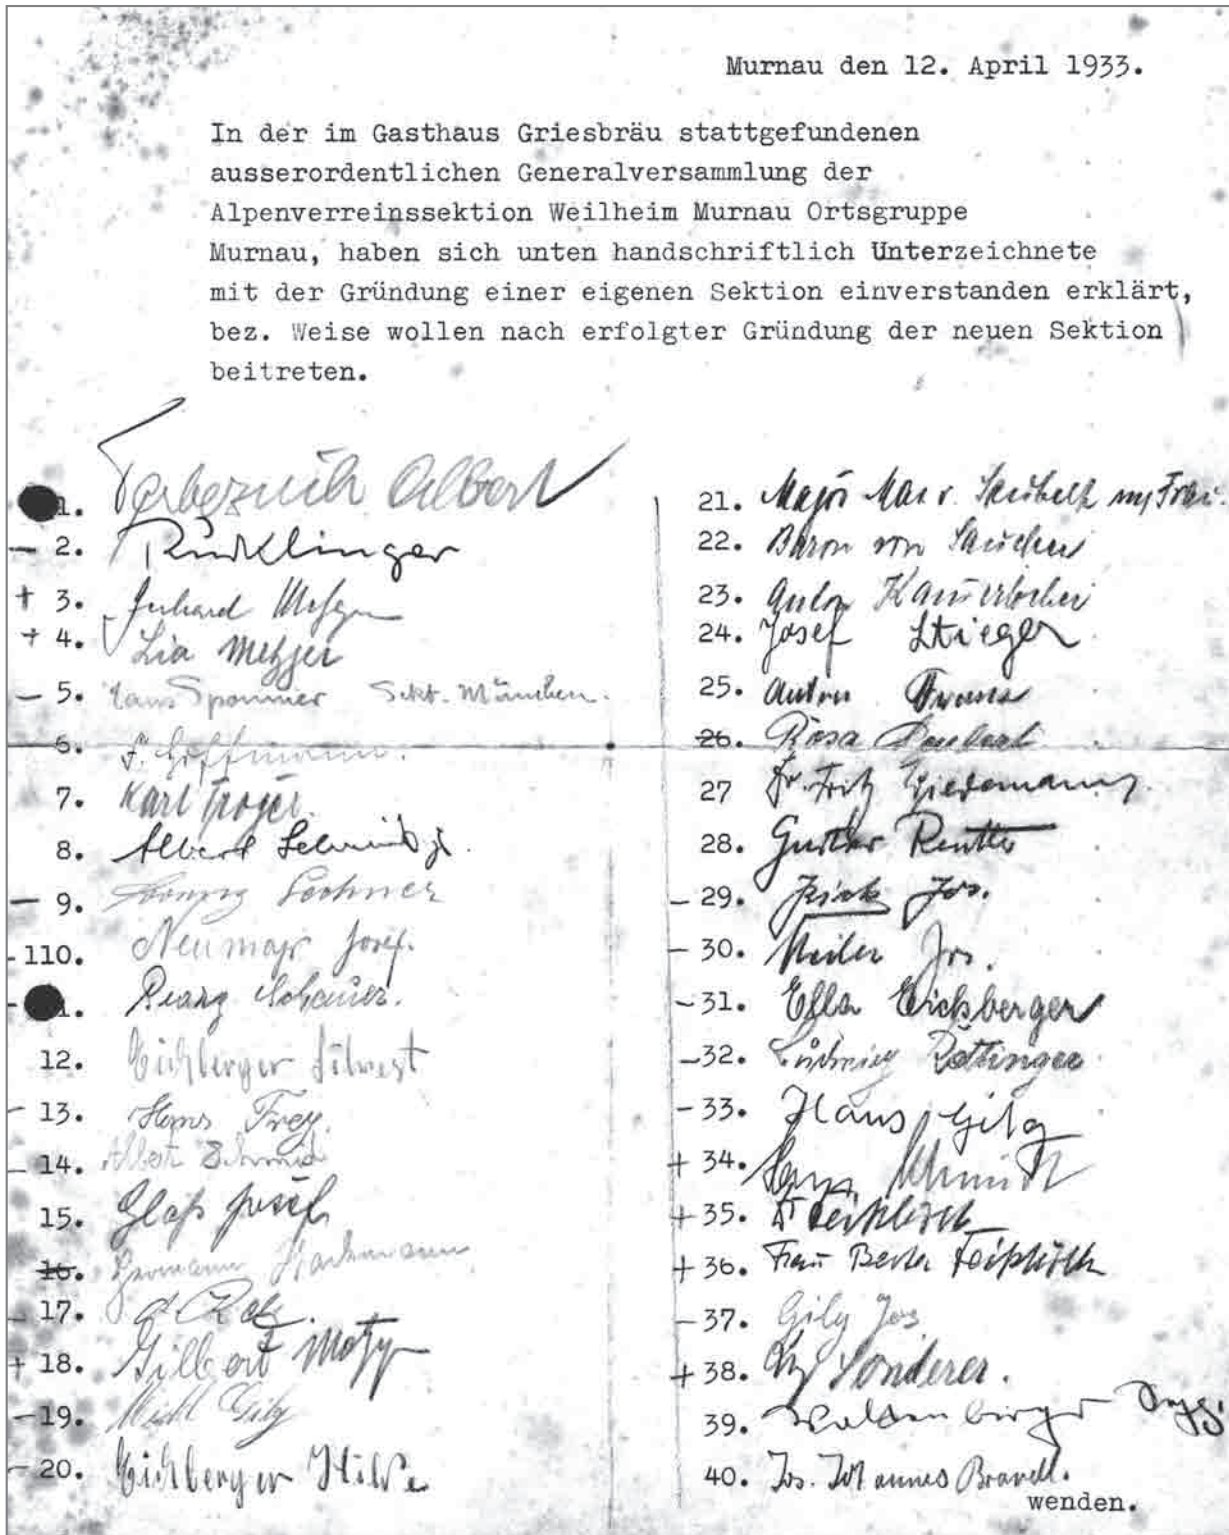 Murnau den 12. April 1933.
In der im Gasthaus Griesbräu stattgefundenen
ausserordentlichen Generalversammlung der
Alpenverreinssektion Weilheim Murnau Ortsgruppe
Murnau, haben sich unten handschriftlich Unterzeichnete
mit der Gründung einer eigenen Sektion einverstanden erklärt,
bez. Weise wollen nach erfolgter Gründung der neuen Sektion
beitreten.
1. Albert
- 2.
+ 3. Metzger
+ 4. Lia Metzger
- 5. Hans Sponner Sekt. München.
6. Hoffmann.
7. Karl Troger.
8. Albert Schmid jr.
- 9. Lechner
- 110. Neumayr Josef.
- 1. Georg Schauer.
12. Eichberger Silvest
- 13. Hans Frey.
- 14. Albert Schmid
15. Glaß Josef
16. Hermann
- 17.
+ 18. Gilbert
- 19. Michl Gilg
- 20. Eichberger Hilde
21. Major Max v. m/Frau.
22. Baron von
23. Anton
24. Josef Stieger
25. Anton
26. Rosa
27 Dr. Fritz Wiedemann
28. Gustav Reutter
- 29. Jos.
- 30. Jos.
- 31. Ella Eichberger
- 32. Ludwig Röttinger
- 33. Hans Gilg
+ 34. Schmidt
+ 35.
+ 36. Frau Berta
- 37. Gilg Jos
+ 38. Sonderer.
39.
40. Jos. Johannes
wenden.